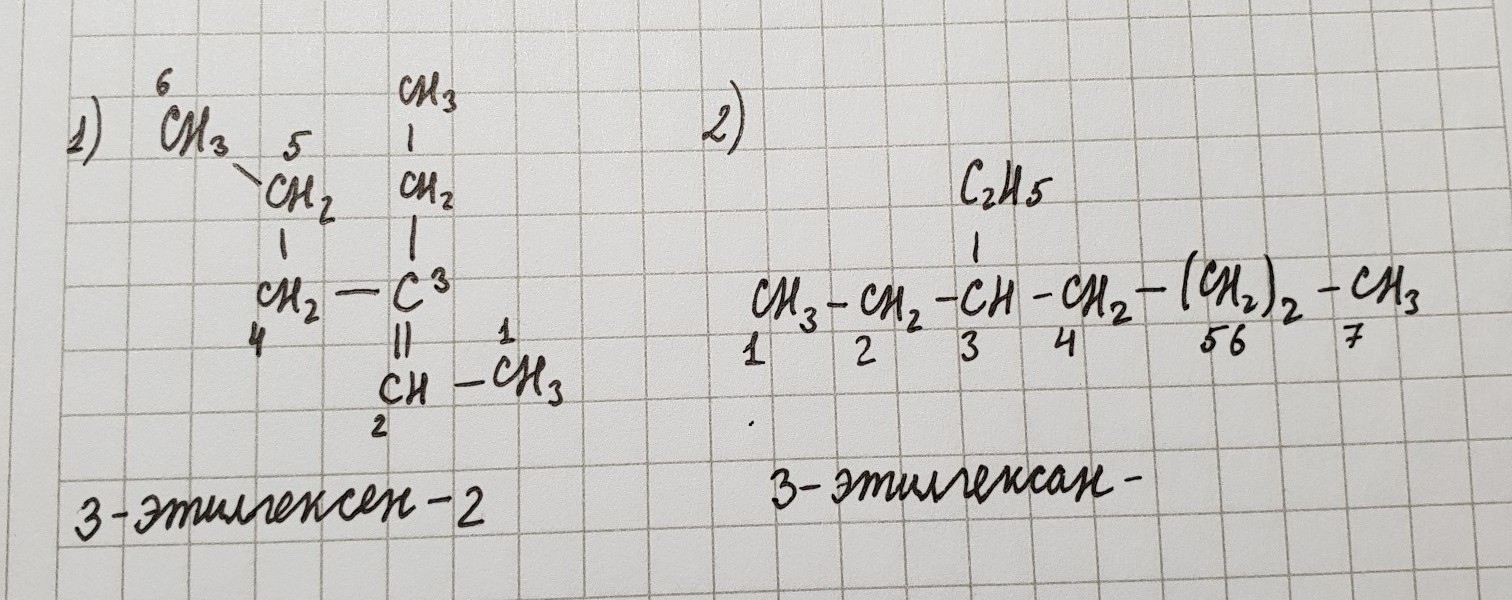 1)
6
CH3
5
CH2
CH3
CH2
CH2 — C 3
4
||
1
CH — CH3
2
3-этилгексен-2
2)
C2H5
CH3 – CH2 – CH – CH2 – (CH2)2 – CH3
1 2 3 4 56 7
3-этилгексан-